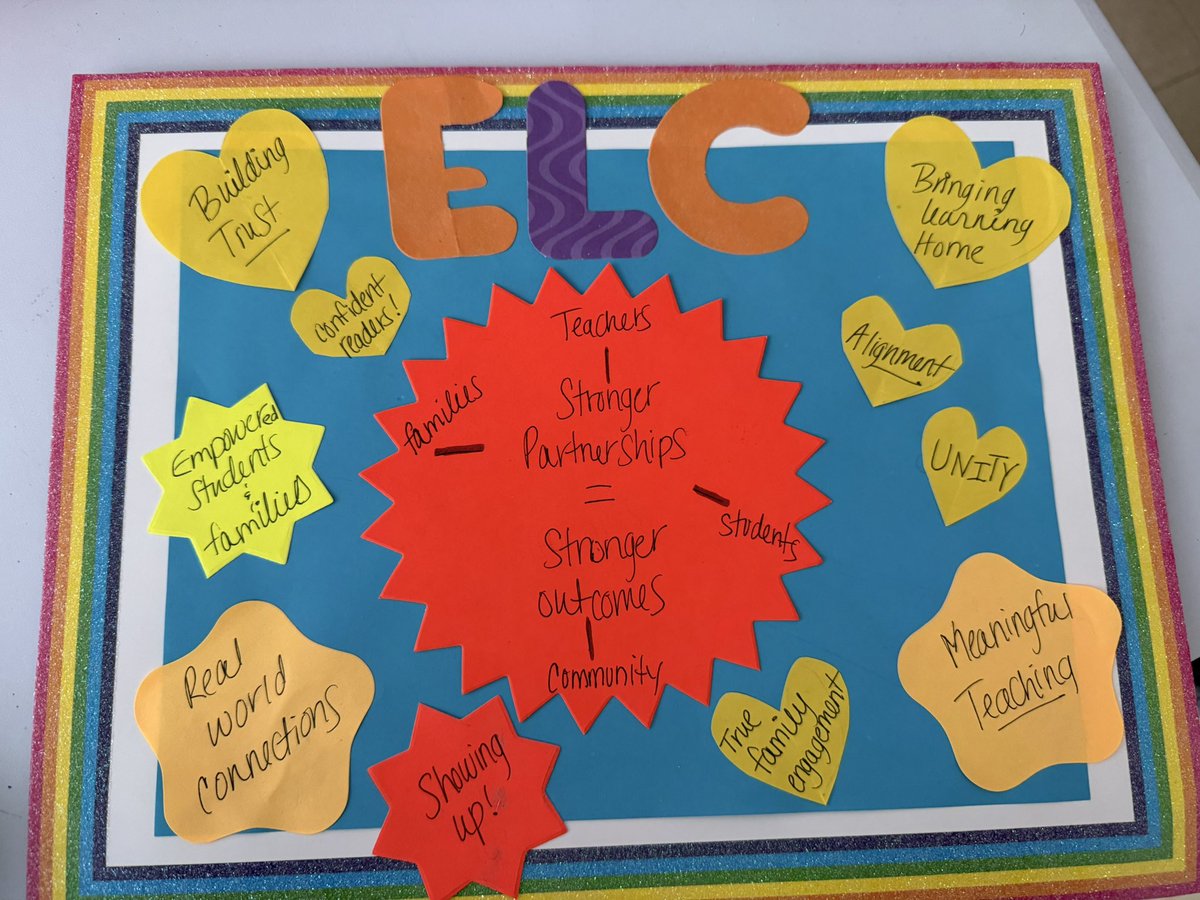 ELC
Building
Trust
Bringing
learning
Home
confident
readers!
Alignment
Teachers
families
Stronger
Partnerships
=
Stronger
outcomes
Students
Community
UNITY
Empowered
Students
&
families
Real
world
connections
Showing
up!
True
family
engagement
Meaningful
Teaching